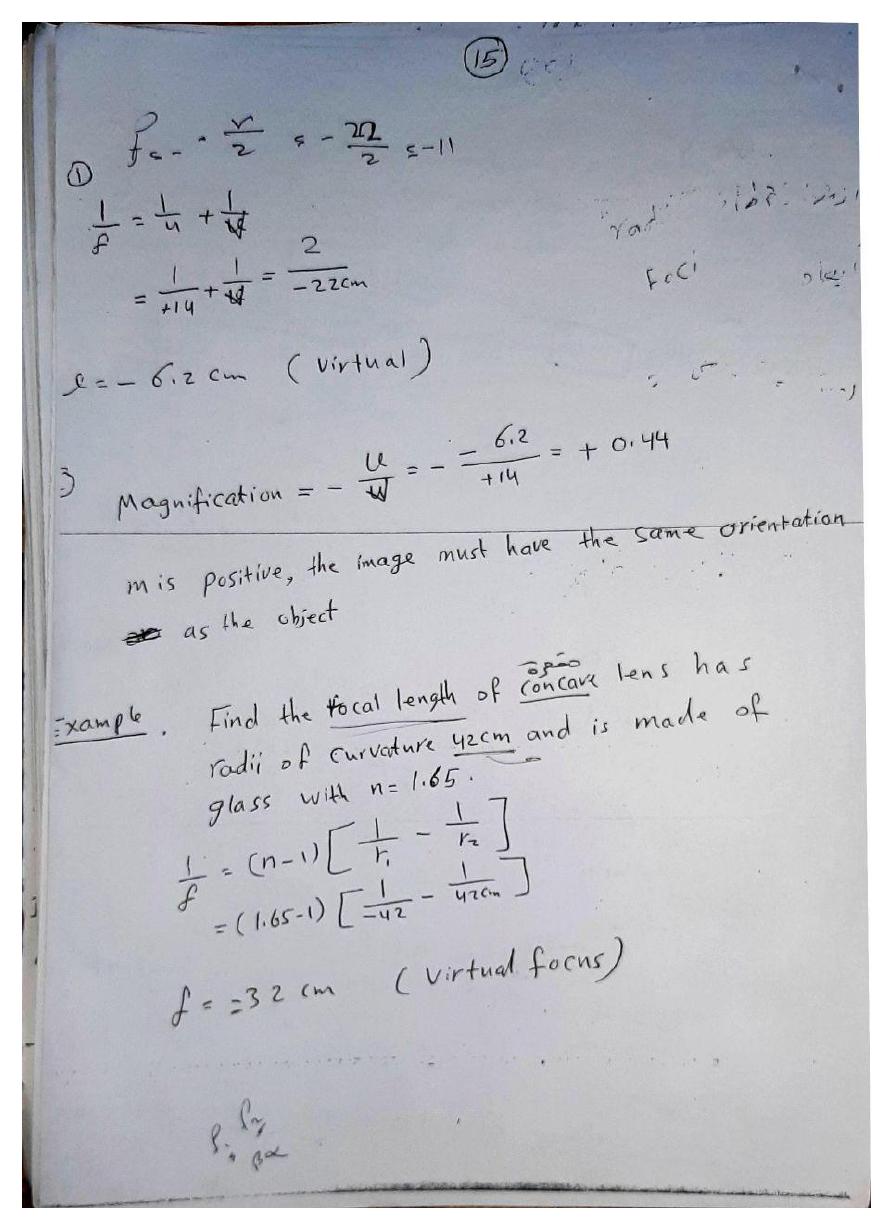 15
f = - r/2 = - 22/2 = -11
①
1/f = 1/u + 1/v
= 1/+14 + 1/v = 2/-22cm
= - 6.2 cm (virtual)
3
Magnification = - = - - 6.2/+14 = + 0.44
m is positive, the image must have the same orientation
as the object
Example. Find the focal length of concave lens has
مقعرة
radii of curvature 42cm and is made of
glass with n= 1.65.
1/f = (n-1) [ 1/r₁ - 1/r₂ ]
= (1.65-1) [ 1/-42 - 1/42cm ]
f = -32 cm (virtual focus)
rad
foci